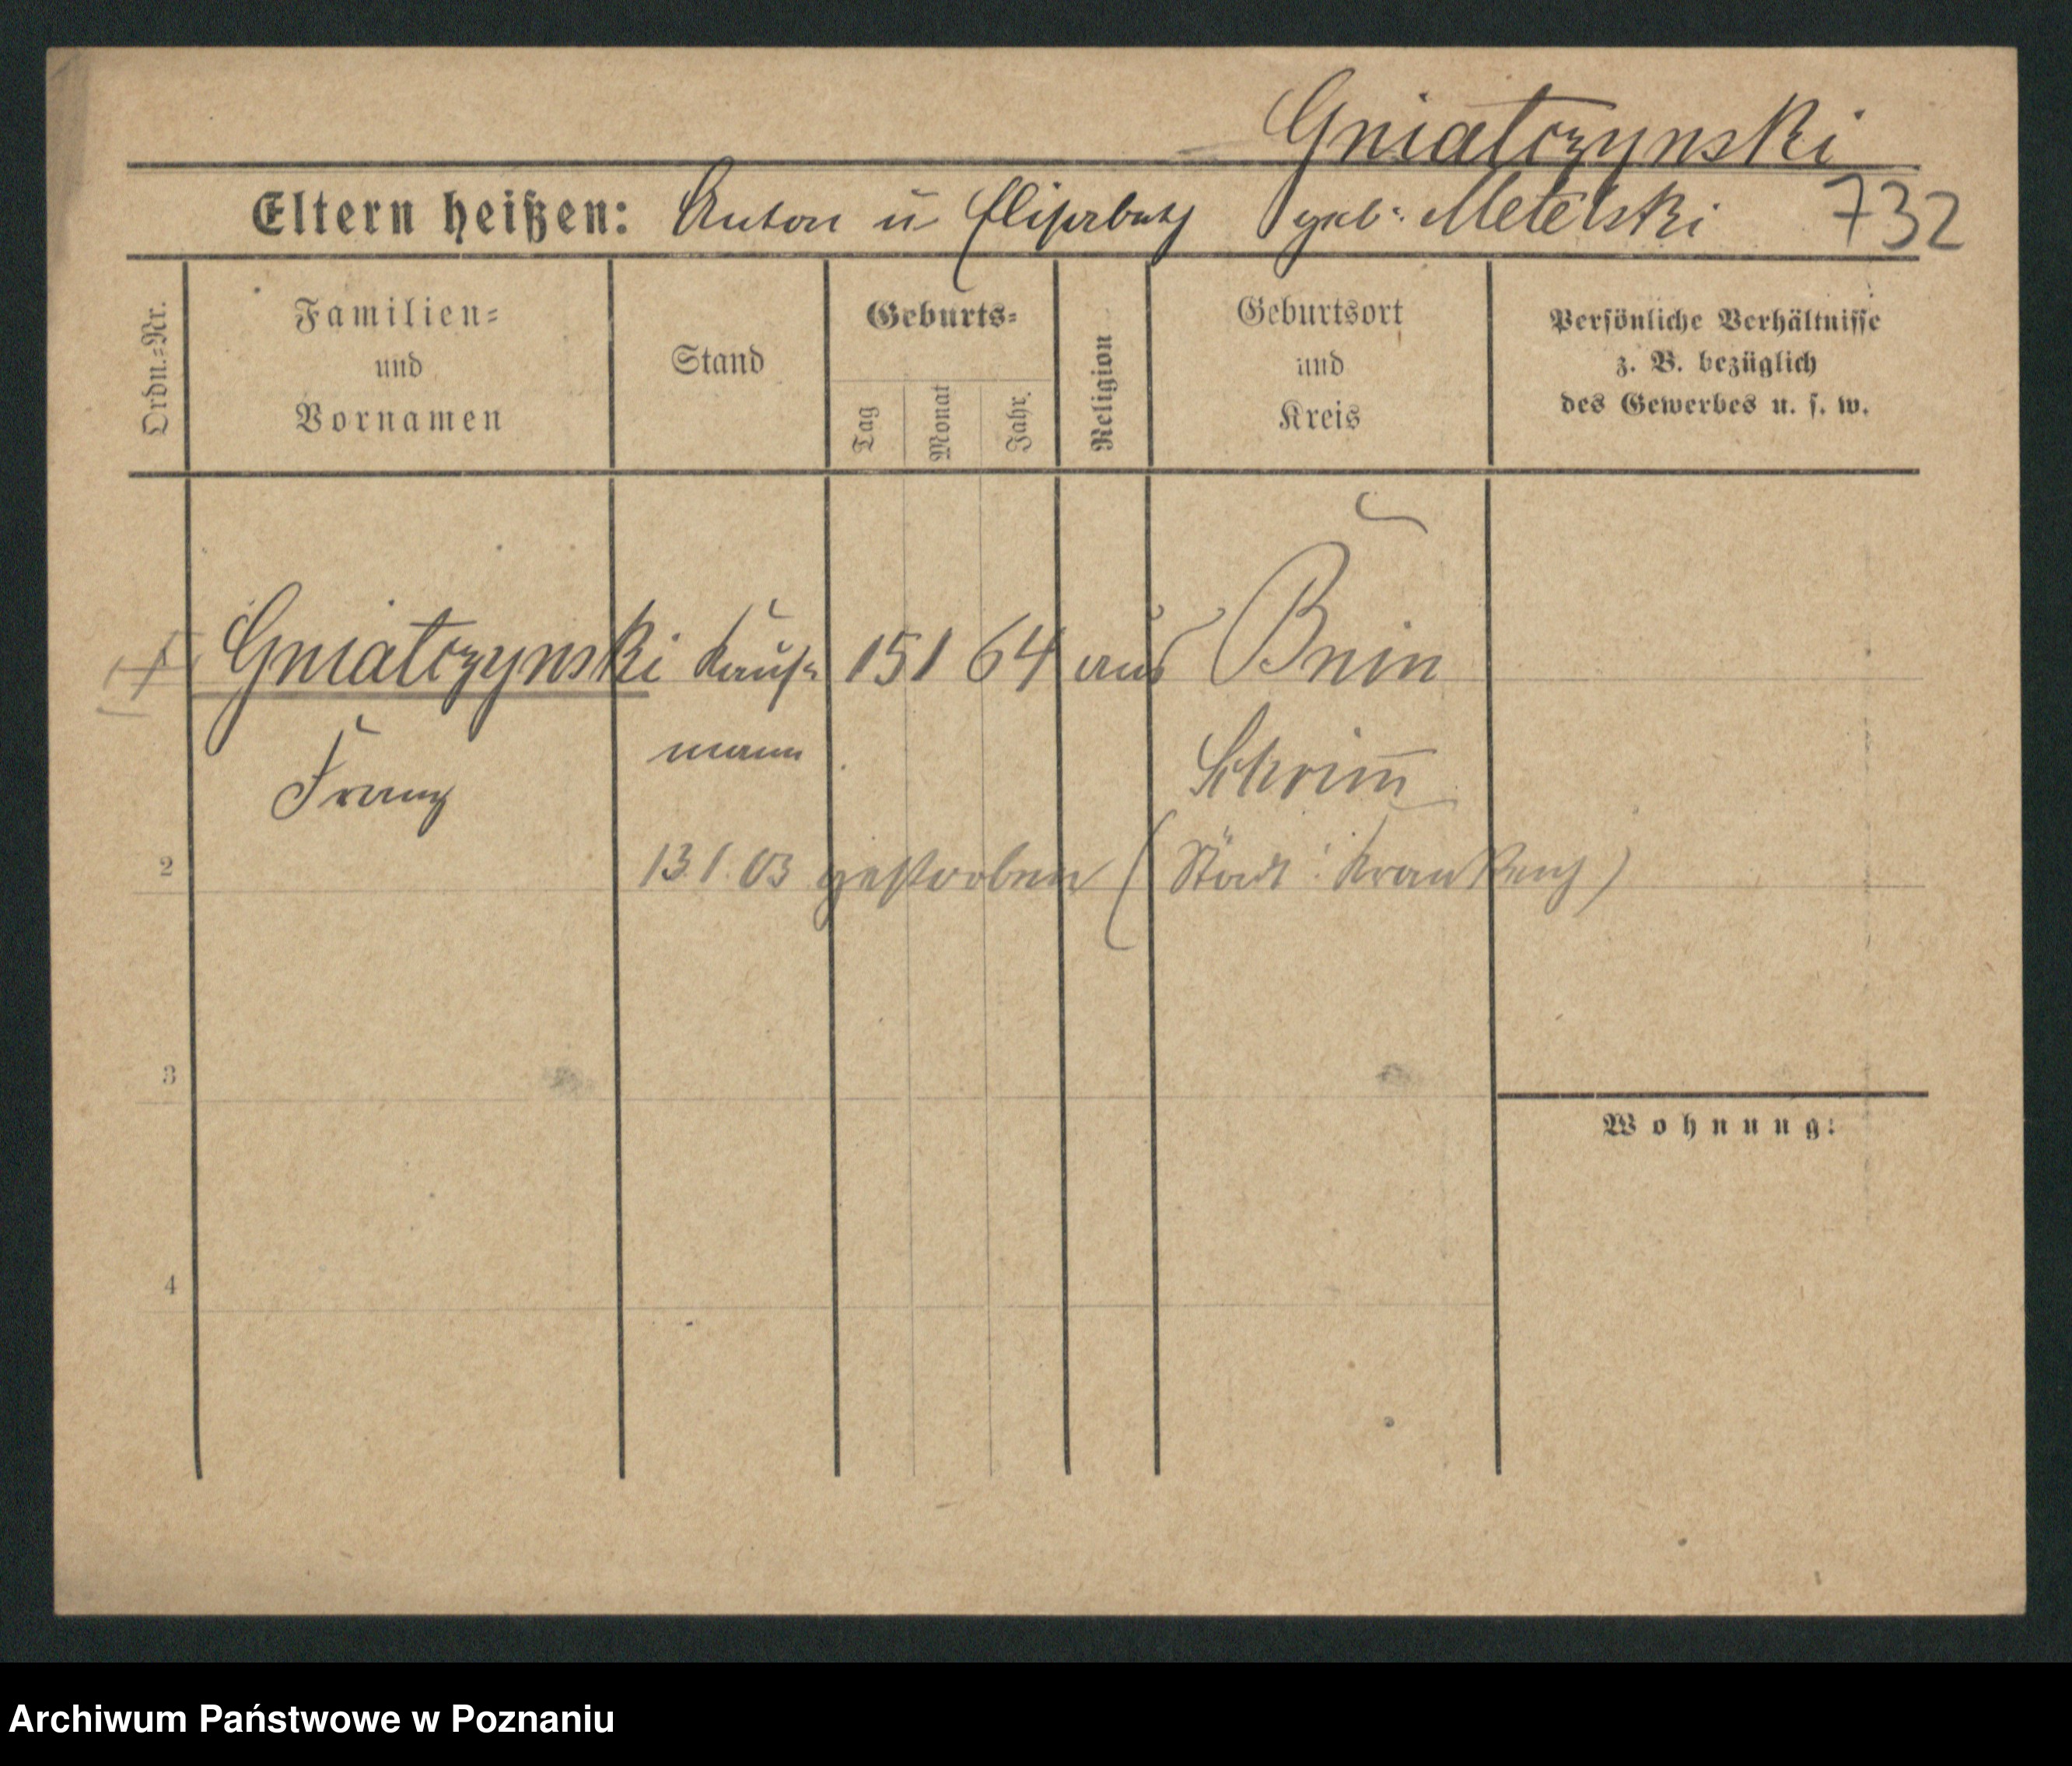 Gniatczynski
Eltern heißen: Anton u Elisabeth geb: Metelski 732
Ordn.-Nr.
Familien-
und
Vornamen
Stand
Geburts-
Tag
Monat
Jahr.
Religion
Geburtsort
und
Kreis
Persönliche Verhältnisse
z. B. bezüglich
des Gewerbes u. s. w.
Gniatczynski Kauf- 15 1 64 aus Bnin
Franz mann Schrim̄
2 13.1.03 gestorben (Städt: Krankenh)
3
Wohnung:
4
Archiwum Państwowe w Poznaniu